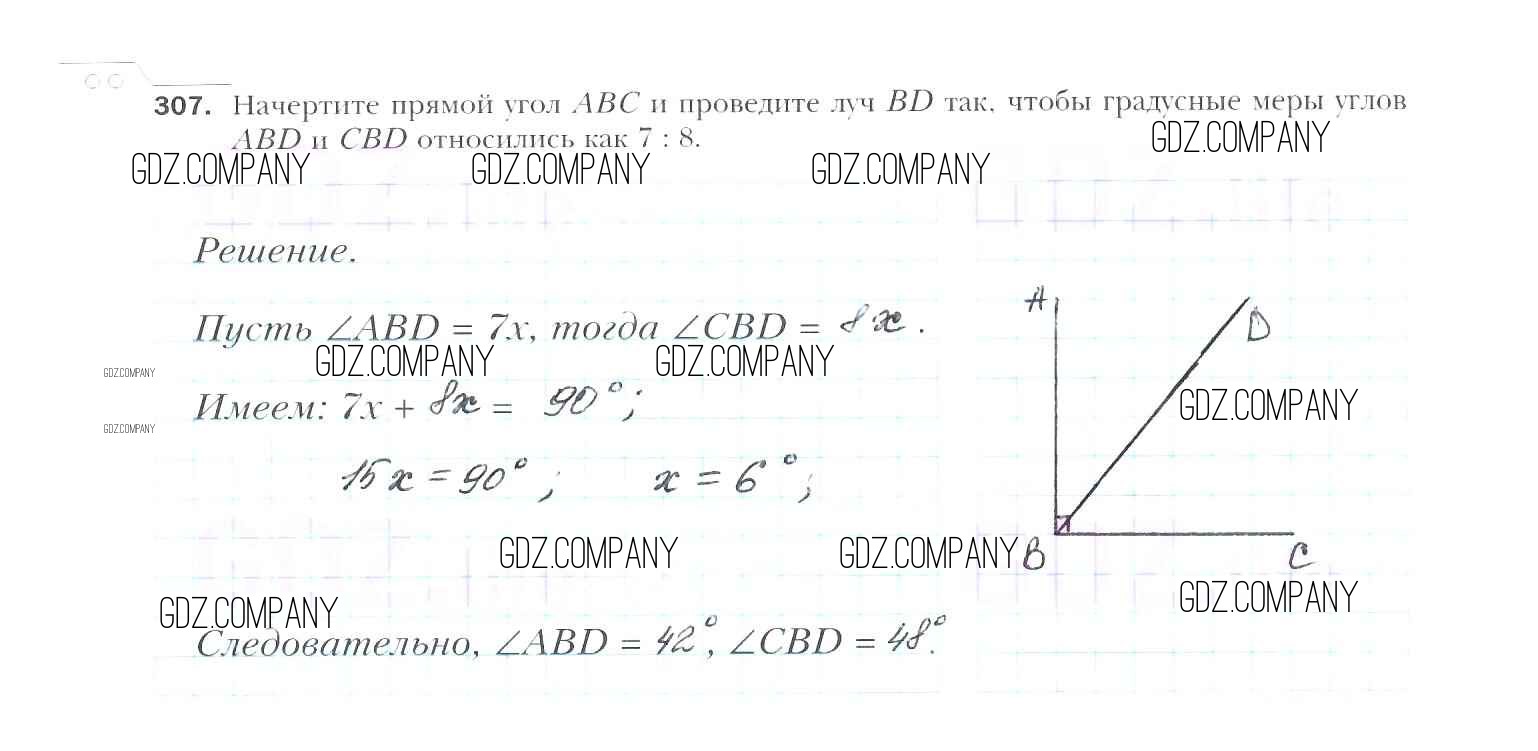 307. Начертите прямой угол ABC и проведите луч BD так, чтобы градусные меры углов
ABD и CBD относились как 7 : 8.
GDZ.COMPANY
GDZ.COMPANY GDZ.COMPANY GDZ.COMPANY
Решение.
A
D
Пусть ∠ABD = 7x, тогда ∠CBD = 8x.
GDZ.COMPANY GDZ.COMPANY
GDZ.COMPANY
GDZ.COMPANY
Имеем: 7x + 8x = 90°;
GDZ.COMPANY
15x = 90°; x = 6°;
GDZ.COMPANY GDZ.COMPANY
B C
GDZ.COMPANY
GDZ.COMPANY
Следовательно, ∠ABD = 42°, ∠CBD = 48°.